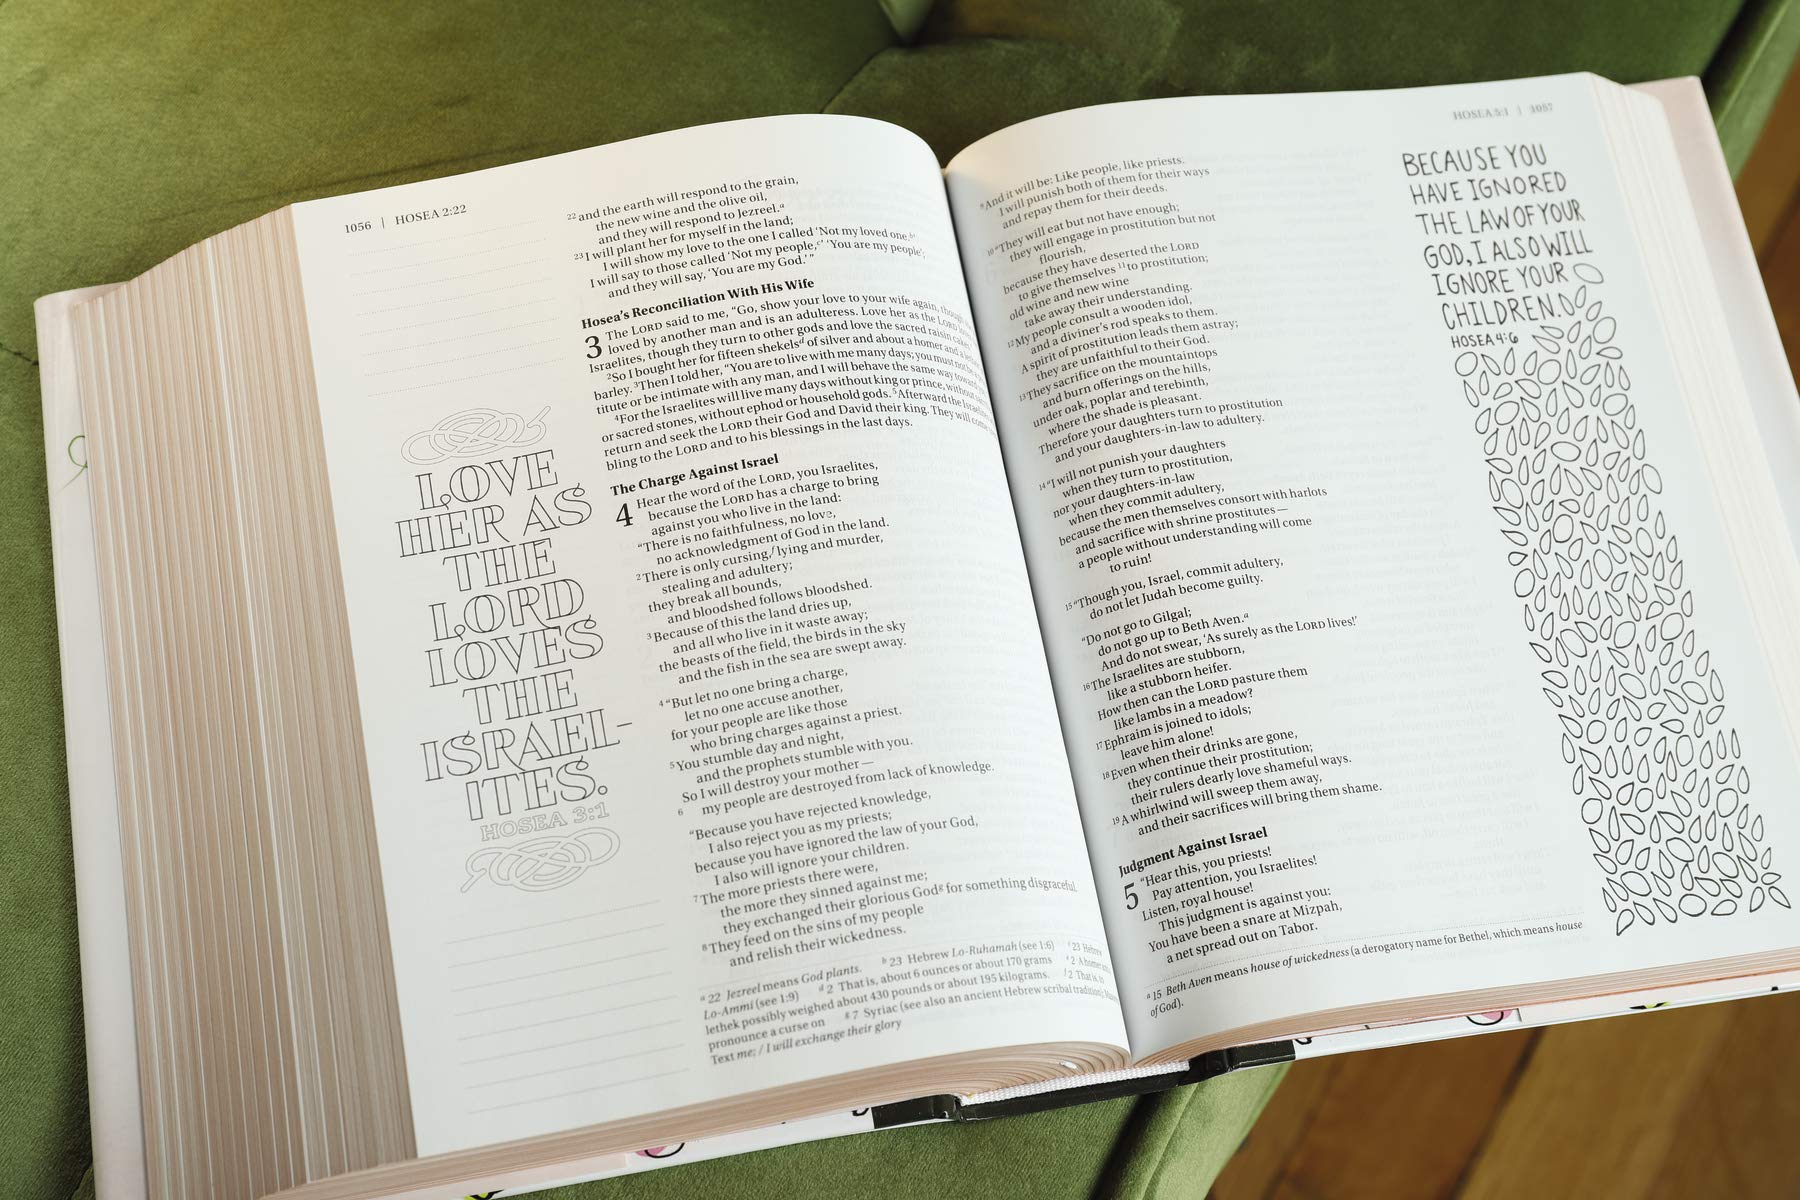 1056 | HOSEA 2:22
LOVE
HER AS
THE
LORD
LOVES
THE
ISRAEL-
ITES.
HOSEA 3:1
22 and the earth will respond to the grain,
the new wine and the olive oil,
and they will respond to Jezreel.a
23 I will plant her for myself in the land;
I will show my love to the one I called ‘Not my loved one.b’
I will say to those called ‘Not my people,c’ ‘You are my people’;
and they will say, ‘You are my God.’ ”
Hosea’s Reconciliation With His Wife
3 The LORD said to me, “Go, show your love to your wife again, though
loved by another man and is an adulteress. Love her as the LORD
Israelites, though they turn to other gods and love the sacred raisin
2So I bought her for fifteen shekelsd of silver and about a homer and a
barley. 3Then I told her, “You are to live with me many days; you must not be a
titute or be intimate with any man, and I will behave the same way toward
4For the Israelites will live many days without king or prince, without
or sacred stones, without ephod or household gods. 5Afterward the Israelites
return and seek the LORD their God and David their king. They will come
bling to the LORD and to his blessings in the last days.
The Charge Against Israel
4 Hear the word of the LORD, you Israelites,
because the LORD has a charge to bring
against you who live in the land:
“There is no faithfulness, no love,
no acknowledgment of God in the land.
2 There is only cursing,f lying and murder,
stealing and adultery;
they break all bounds,
and bloodshed follows bloodshed.
3 Because of this the land dries up,
and all who live in it waste away;
the beasts of the field, the birds in the sky
and the fish in the sea are swept away.
4 “But let no one bring a charge,
let no one accuse another,
for your people are like those
who bring charges against a priest.
5 You stumble day and night,
and the prophets stumble with you.
So I will destroy your mother —
6 my people are destroyed from lack of knowledge.
“Because you have rejected knowledge,
I also reject you as my priests;
because you have ignored the law of your God,
I also will ignore your children.
7 The more priests there were,
the more they sinned against me;
they exchanged their glorious Godg for something disgraceful.
8 They feed on the sins of my people
and relish their wickedness.
a 22 Jezreel means God plants. b 23 Hebrew Lo-Ruhamah (see 1:6) c 23 Hebrew
Lo-Ammi (see 1:9) d 2 That is, about 6 ounces or about 170 grams e 2 A homer
lethek possibly weighed about 430 pounds or about 195 kilograms. f 2 That is, to
pronounce a curse on g 7 Syriac (see also an ancient Hebrew scribal tradition);
Text me; / I will exchange their glory
HOSEA 5:1 | 1057
9 And it will be: Like people, like priests.
I will punish both of them for their ways
and repay them for their deeds.
10 “They will eat but not have enough;
they will engage in prostitution but not
flourish,
because they have deserted the LORD
to give themselves 11to prostitution;
old wine and new wine
take away their understanding.
12 My people consult a wooden idol,
and a diviner’s rod speaks to them.
A spirit of prostitution leads them astray;
they are unfaithful to their God.
13 They sacrifice on the mountaintops
and burn offerings on the hills,
under oak, poplar and terebinth,
where the shade is pleasant.
Therefore your daughters turn to prostitution
and your daughters-in-law to adultery.
14 “I will not punish your daughters
when they turn to prostitution,
nor your daughters-in-law
when they commit adultery,
because the men themselves consort with harlots
and sacrifice with shrine prostitutes —
a people without understanding will come
to ruin!
15 “Though you, Israel, commit adultery,
do not let Judah become guilty.
“Do not go to Gilgal;
do not go up to Beth Aven.a
And do not swear, ‘As surely as the LORD lives!’
16 The Israelites are stubborn,
like a stubborn heifer.
How then can the LORD pasture them
like lambs in a meadow?
17 Ephraim is joined to idols;
leave him alone!
18 Even when their drinks are gone,
they continue their prostitution;
their rulers dearly love shameful ways.
19 A whirlwind will sweep them away,
and their sacrifices will bring them shame.
Judgment Against Israel
5 “Hear this, you priests!
Pay attention, you Israelites!
Listen, royal house!
This judgment is against you:
You have been a snare at Mizpah,
a net spread out on Tabor.
a 15 Beth Aven means house of wickedness (a derogatory name for Bethel, which means house
of God).
BECAUSE YOU
HAVE IGNORED
THE LAW OF YOUR
GOD, I ALSO WILL
IGNORE YOUR
CHILDREN.
HOSEA 4:6